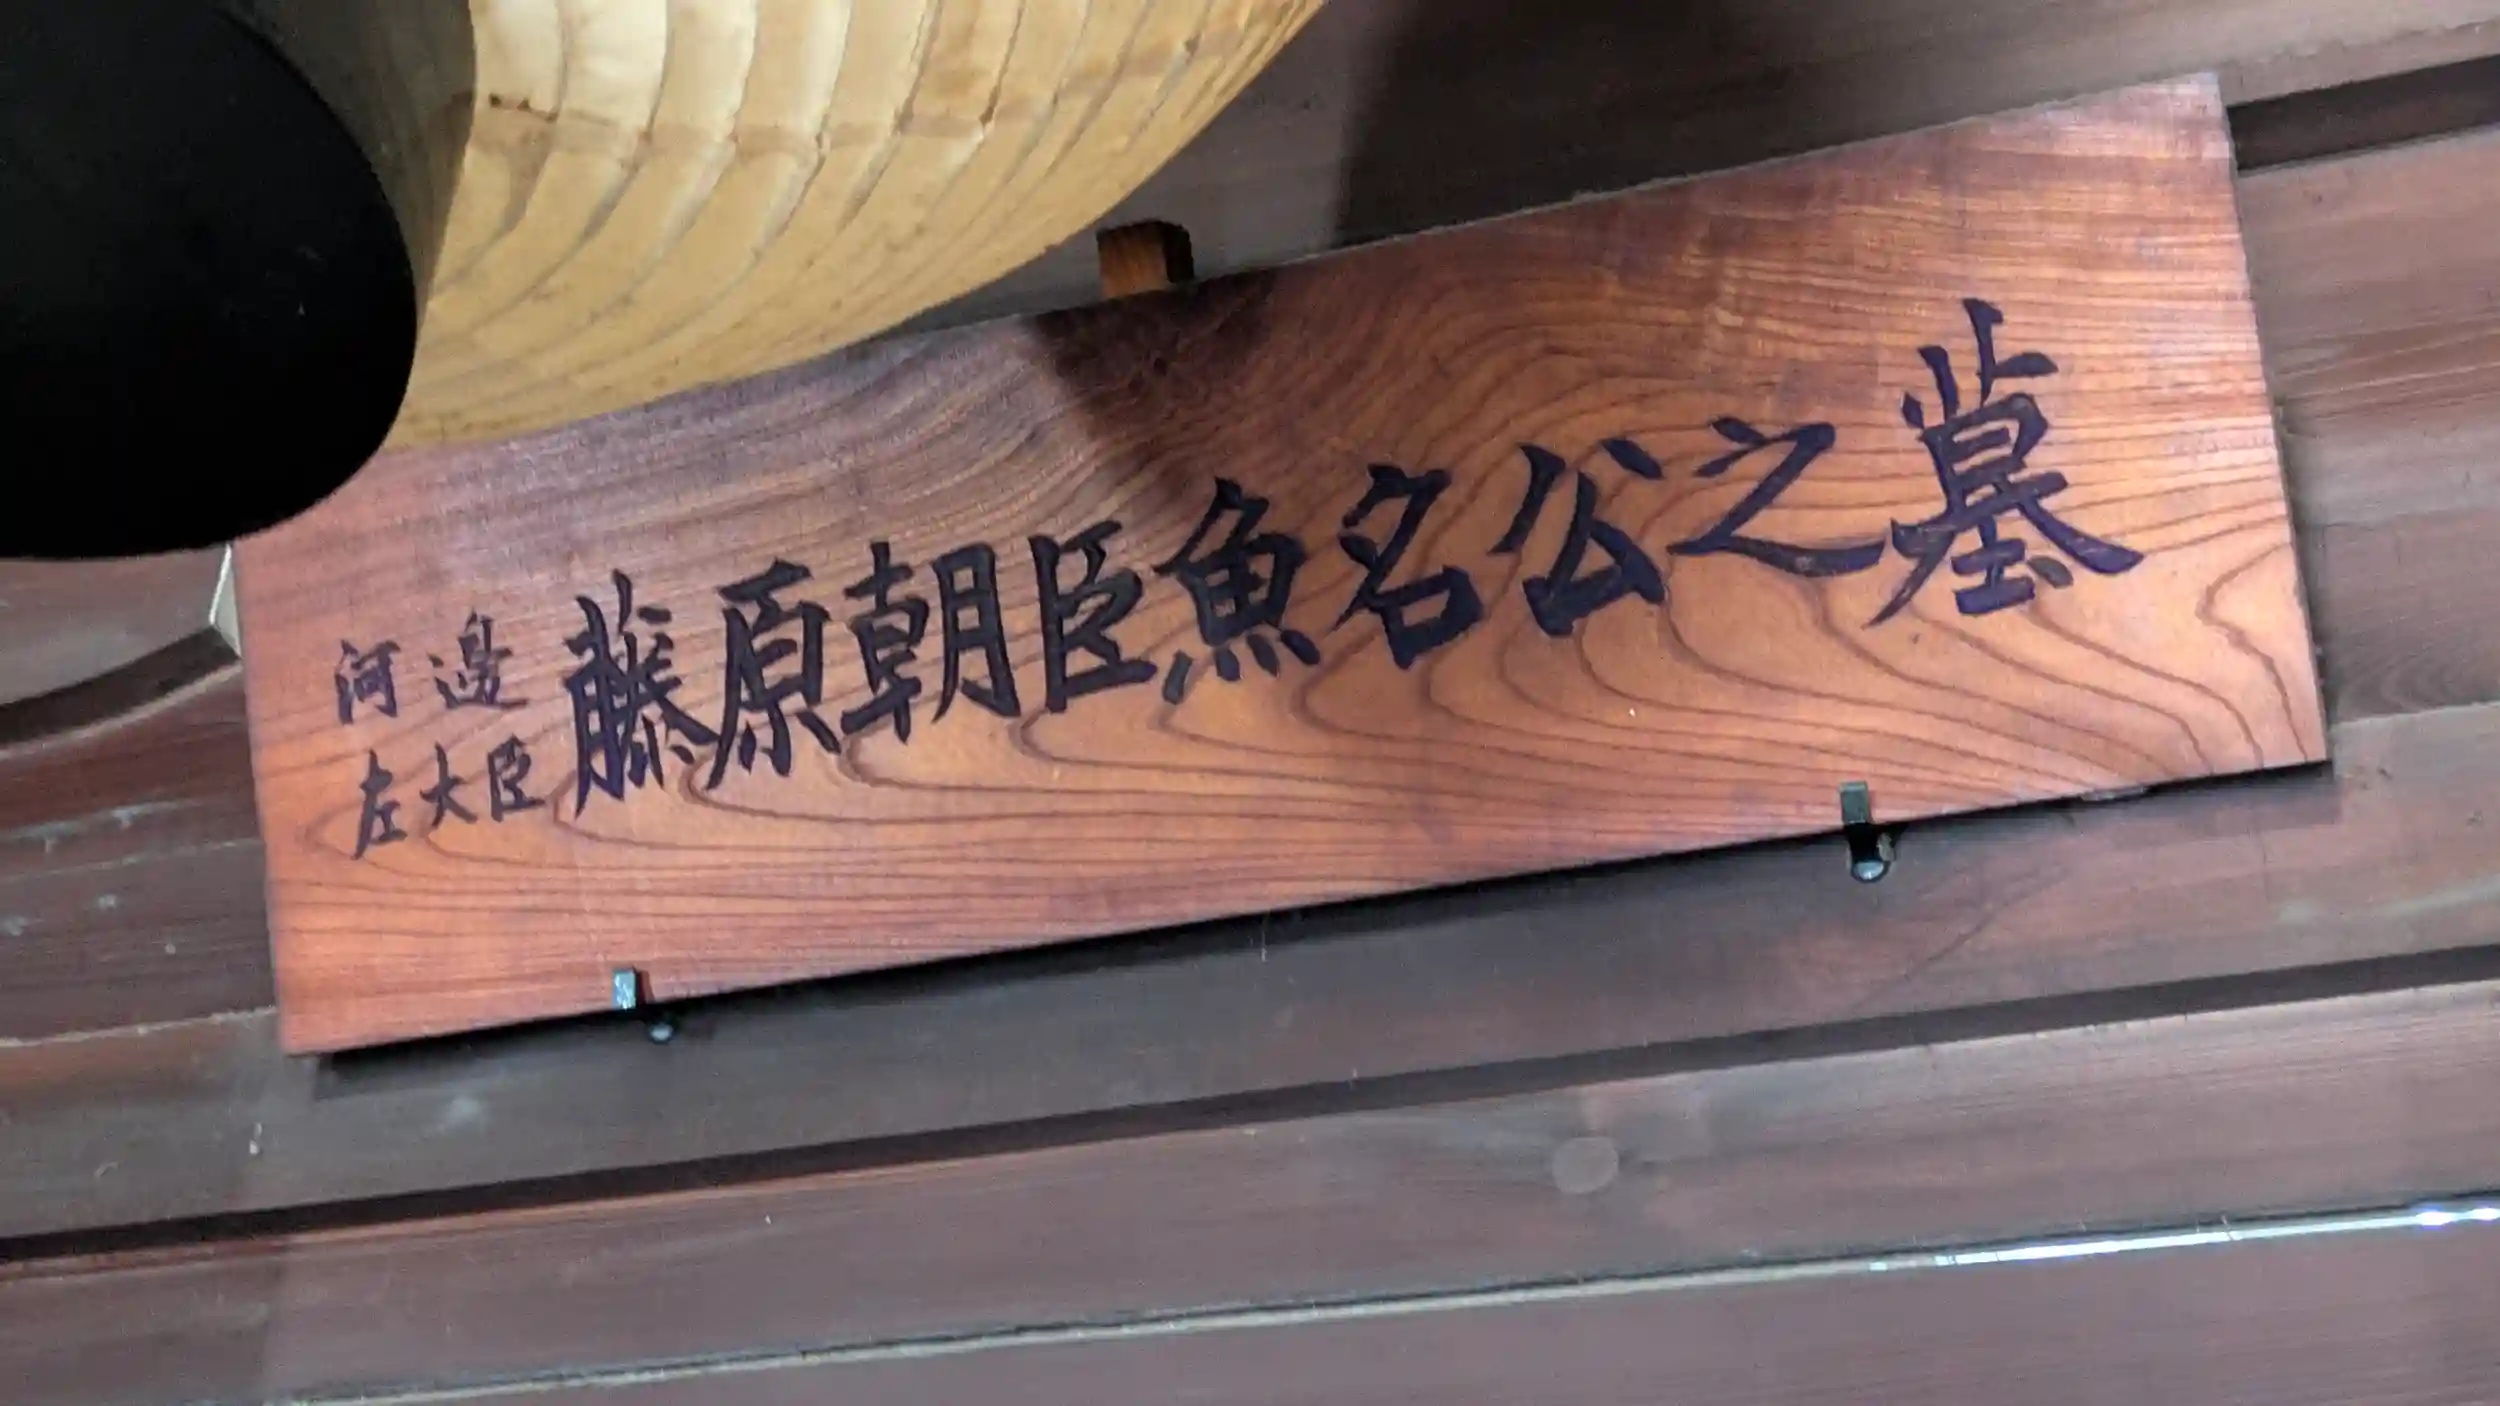 河邊
左大臣
藤原朝臣魚名公之墓